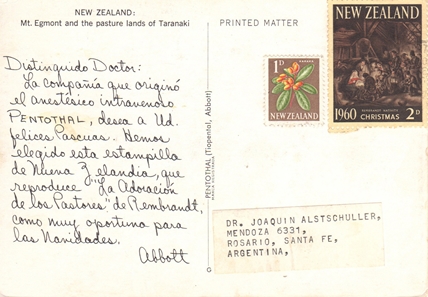 NEW ZEALAND:
Mt. Egmont and the pasture lands of Taranaki
Distinguido Doctor:
La compañía que originó
el anestésico intravenoso
PENTOTHAL, desea a Ud.
felices Pascuas. Hemos
elegido esta estampilla
de Nueva Zelandia, que
reproduce "La Adoración
de los Pastores" de Rembrandt,
como muy oportuna para
las Navidades.
Abbott
PENTOTHAL (Tiopental, Abbott)
MARCA REGISTRADA
G
PRINTED MATTER
1D
NEW ZEALAND
NEW ZEALAND
1960
CHRISTMAS
2D
DR. JOAQUIN ALSTSCHULLER,
MENDOZA 6331,
ROSARIO, SANTA FE,
ARGENTINA,